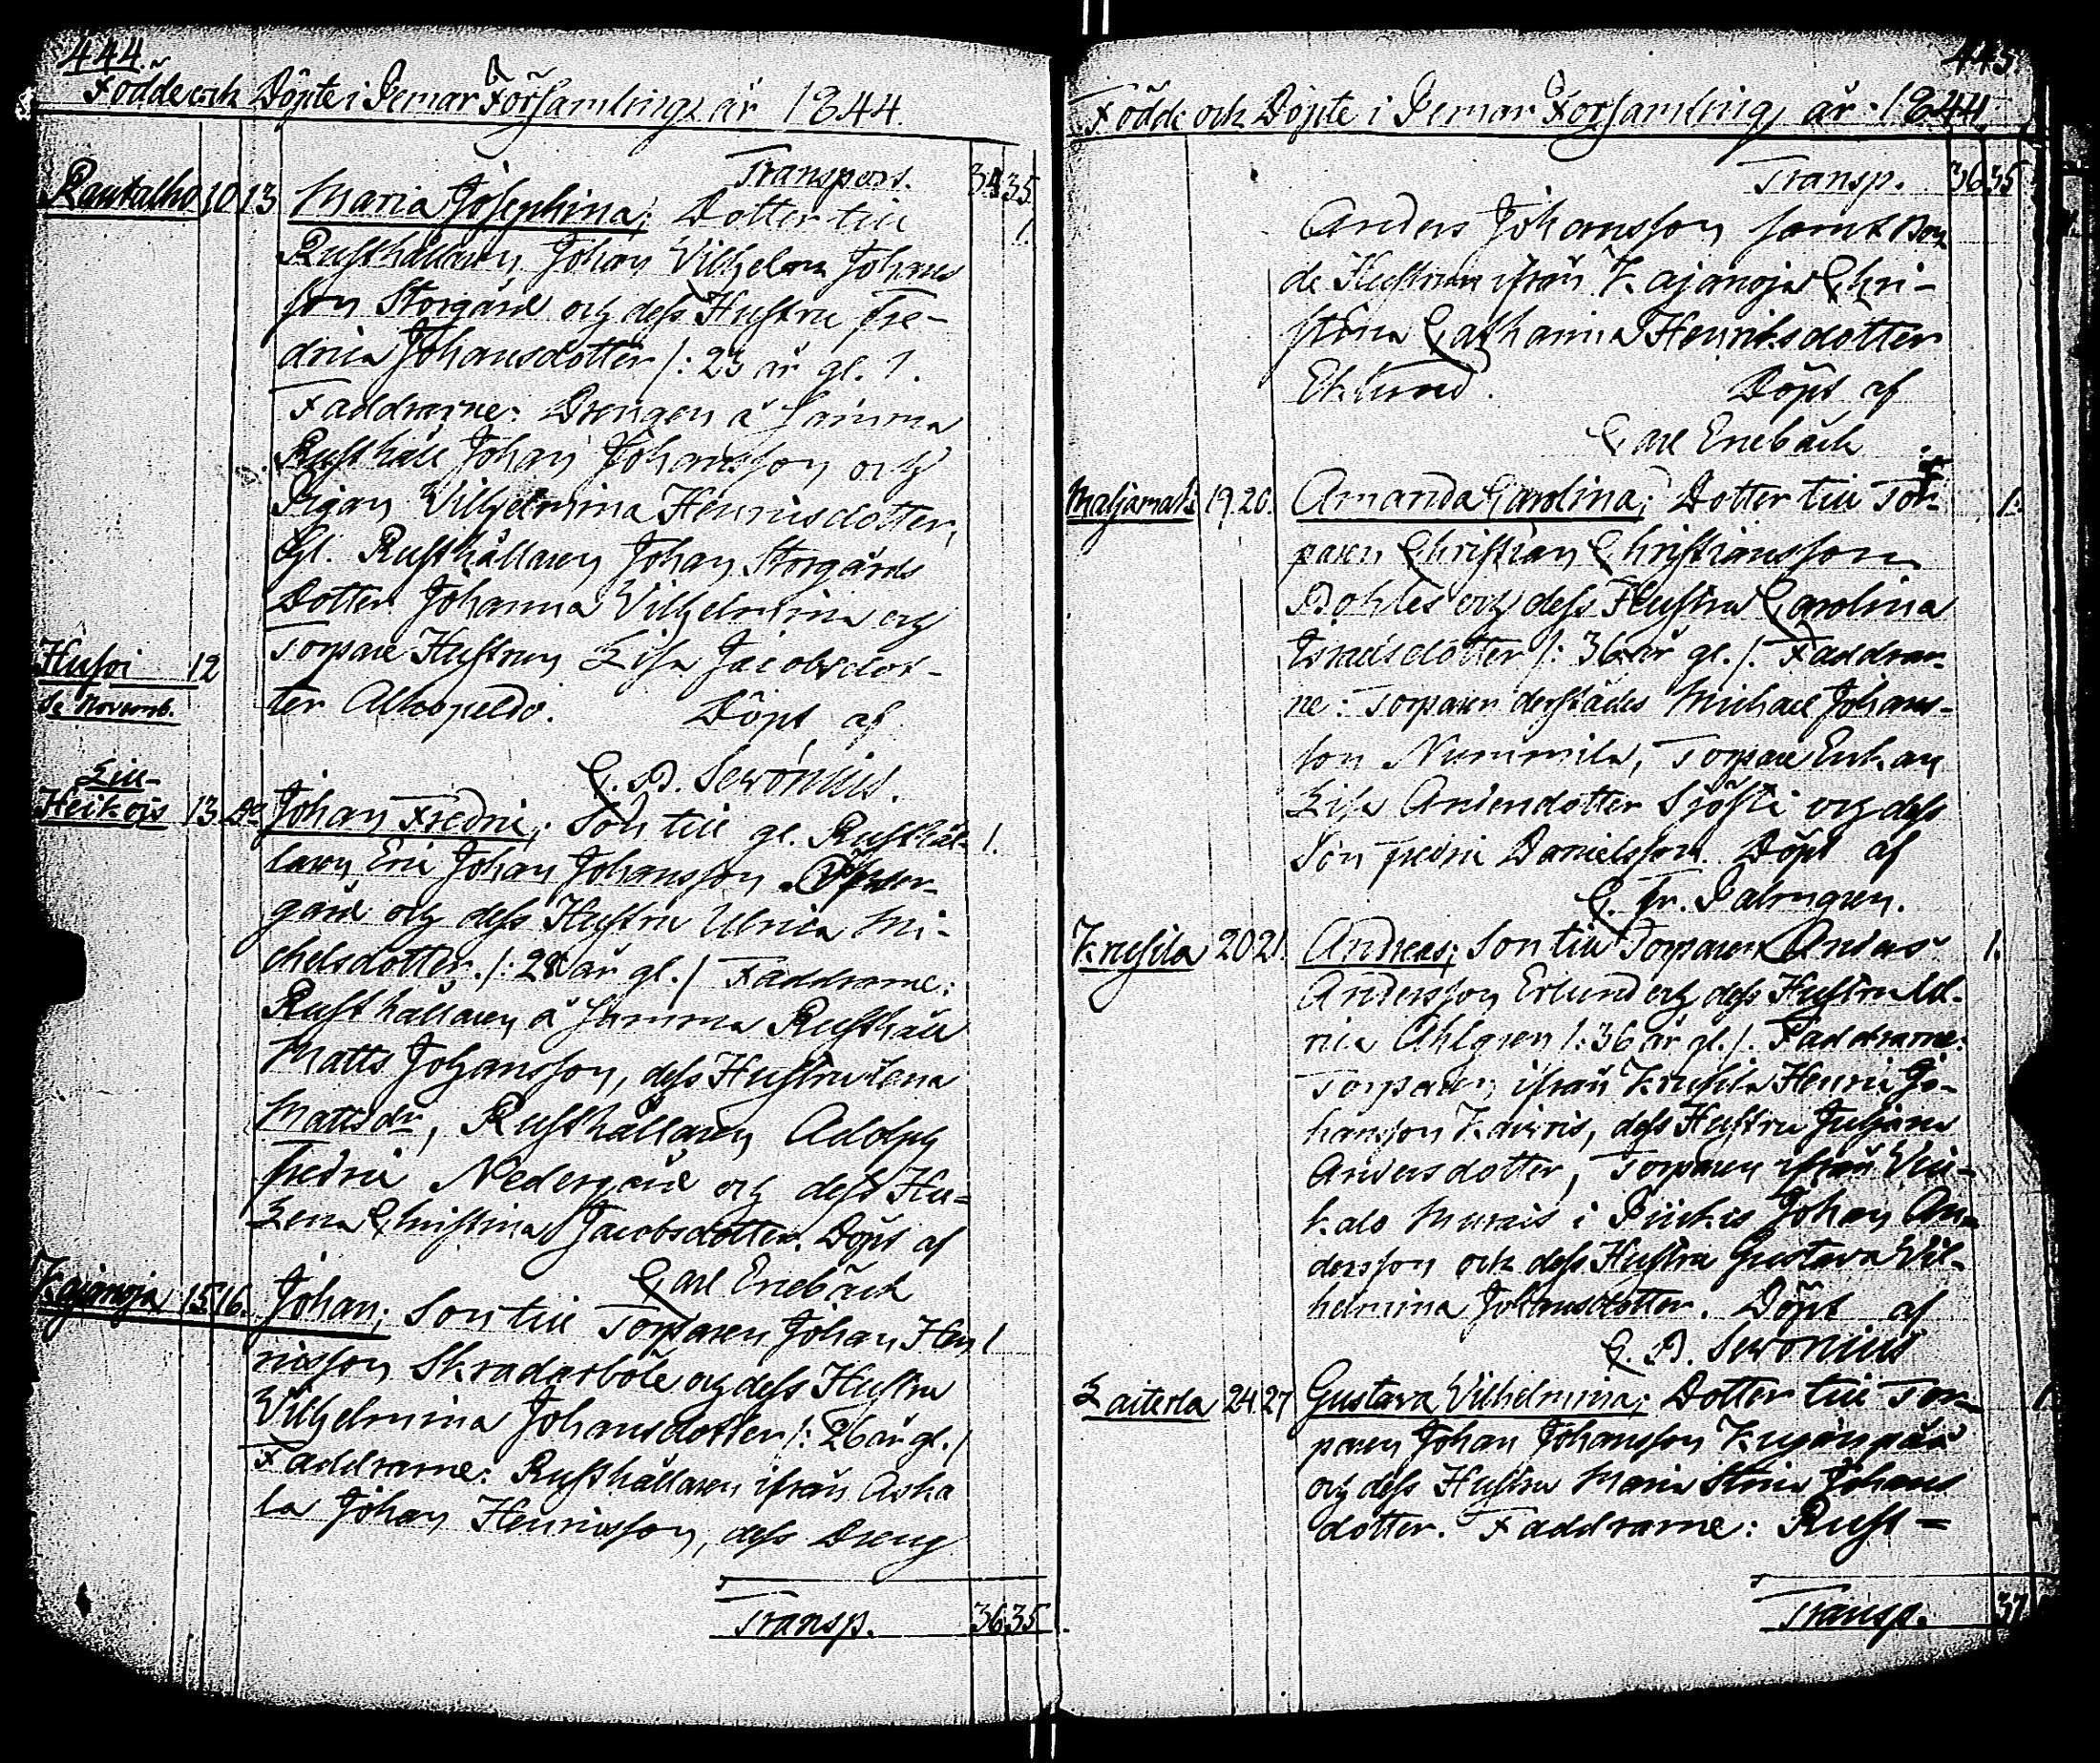 444.
Födde och Döpte i Pemar Församling år 1844.
Transport. 34 35
Rantalho 10 13 Maria Josephina; Dotter till 1.
Rusthållaren Johan Vilhelm Johans
son Storgård och dess Hustru Fre-
drica Johansdotter /: 23 år gl. /.
Faddrarne: Drengen å samma
Rusthåll Johan Johansson och
Pigan Vilhelmina Henricsdotter,
Gl. Rusthållaren Johan Storgårds
Dotter Johanna Vilhelmina och
Husoi 12 Torpare Hustrun Lisa Jacobsdot-
se Novemb. ter Alhopeldo. Döpt af
C. D. Sewonius.
Lill-
Heikois 13 Johan Fredric; Son till gl. Rusthål- 1.
laren Eric Johan Johansson
gård och dess Hustru Ulrica Mi-
chelsdotter. /: 28 år gl. / Faddrarne:
Rusthållaren å samma Rusthåll
Matts Johansson, dess Hustru Lena
Mattsdr, Rusthållaren Adolph
Fredric Nedergård och dess Hu-
Lena Christina Jacobsdotter. Döpt af
Carl Enebäck
Kajanoja 15 16. Johan; Son till Torparen Johan Hen 1
ricsson Skradarböle och dess Hustru
Vilhelmina Johansdotter /: 26 år gl. /
Faddrarne: Rusthållaren ifrån Aska
la Johan Henricsson, dess Dreng
Transp. 36 35
445.
Födde och Döpte i Pemar Församling år 1844.
Transp. 36 35
Anders Johansson samt Bon
de Hustrun ifrån Kajanoja Chri-
stina Catharina Henriksdotter
Eklund. Döpt af
Carl Enebäck
19. 20. Amanda Carolina; Dotter till Tor- 1.
paren Christian Christiansson
Böhles och dess Hustru Carolina
Israelsdotter /: 36 år gl. /. Faddrar-
ne: Torparen derstädes Michael Johans-
son Nummila, Torpare Enkan
Lisa Andersdotter Sjösti och dess
Son Fredric Danielsson. Döpt af
C. Fr. Palmgren.
Krusila 20 21. Andreas; Son till Torparen Anders 1.
Andersson Erlund och dess Hustru Ul-
rica Ahlgren /: 36 år gl. /. Faddrarne:
Torparen ifrån Krusila Henric Jo-
hansson Kavris, dess Hustru Juliana
Andersdotter, Torparen ifrån Viu-
kalo Murais i Piikis Johan An-
dersson och dess Hustru Gustava Vil-
helmina Johansdotter. Döpt af
C. D. Sewonius
Laiterla 24 27 Gustava Vilhelmina; Dotter till Tor- 1.
paren Johan Johansson Kujanpää
och dess Hustru Maria Stina Johans
dotter. Faddrarne: Rust-
Transp. 37